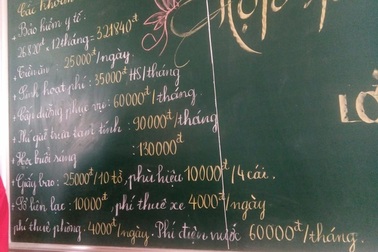 Các khoản
+ Bảo hiểm y tế:
26820đ. 12tháng = 321840đ
+ Tiền ăn: 25000đ/ngày.
+ Sinh hoạt phí: 35000đ HS/tháng
+ Cấp dưỡng phục vụ: 60000đ/tháng.
+ Phí giữ trưa tạm tính: 90000đ/tháng
+ Học buổi sáng : 130000đ
+ Giấy báo: 25000đ/10 tờ, phù hiệu 10000đ/4 cái.
+ Sổ liên lạc: 10000đ, phí thuê xe 4000đ/ngày
phí thuê phòng: 4000đ/ngày. Phí điện nước 60000đ/tháng.
Họp
LỚ